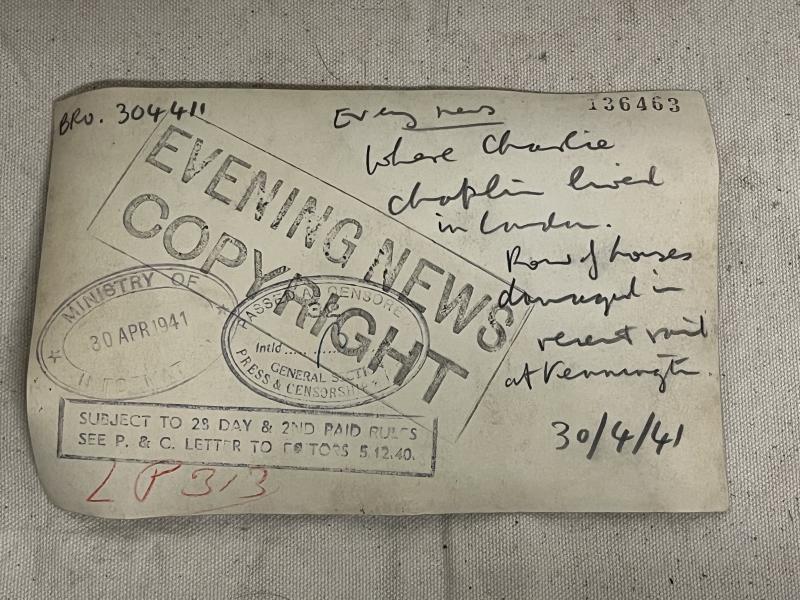 BRU. 304411
Eveng news
136463
Where Charlie
Chaplin lived
in London.
Row of houses
damaged in
recent raid
at Kennington.
30/4/41
EVENING NEWS
COPYRIGHT
MINISTRY OF
30 APR 1941
PASSED CENSOR
Intld.......
GENERAL SECTION
PRESS & CENSORSHIP
SUBJECT TO 28 DAY & 2ND PAID RULES
SEE P. & C. LETTER TO EDITORS 5.12.40.
LP313